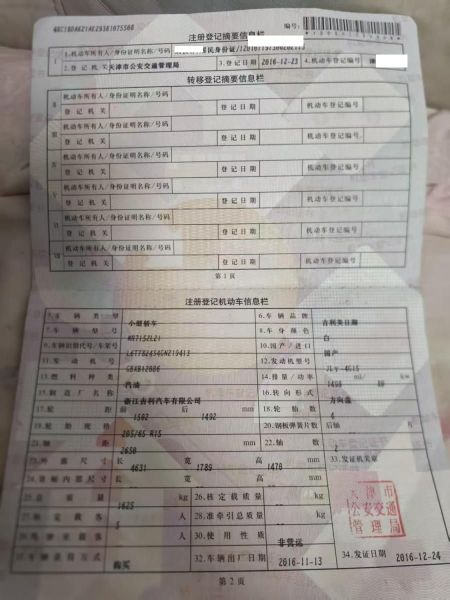 注册登记摘要信息栏
编号:
1.机动车所有人/身份证明名称/号码
居民身份证/
2.登记机关 天津市公安交通管理局 3.登记日期 2016-12-23 4.机动车登记编号
转移登记摘要信息栏
Ⅱ 机动车所有人/身份证明名称/号码
登记机关 登记日期 机动车登记编号
Ⅲ 机动车所有人/身份证明名称/号码
登记机关 登记日期 机动车登记编号
机动车所有人/身份证明名称/号码
登记机关 登记日期 机动车登记编号
机动车所有人/身份证明名称/号码
登记机关 登记日期 机动车登记编号
机动车所有人/身份证明名称/号码
登记机关 登记日期 机动车登记编号
机动车所有人/身份证明名称/号码
登记机关 登记日期 机动车登记编号
第1页
注册登记机动车信息栏
5.车辆类型 小型轿车 6.车辆品牌 吉利美日牌
7.车辆型号 8.车身颜色 白
9.车辆识别代号/车架号 10.国产/进口 国产
11.发动机号 12.发动机型号 JLγ-4G15
13.燃料种类 汽油 14.排量/功率 1498
15.制造厂名称 浙江吉利汽车有限公司 16.转向形式 方向盘
17.轮距 前 1502 后 1492 mm 18.轮胎数 4
19.轮胎规格 205/65 R15 20.钢板弹簧片数 后轴
21.轴距 2650 mm 22.轴数
23.外廓尺寸 长 4631 宽 1789 高 1470 mm 33.发证机关章
24.货厢内部尺寸 长 宽 高 mm
25.总质量 1625 kg 26.核定载质量 kg
27.核定载客 5 人 28.准牵引总质量 kg
人 30.使用性质 非营运
购买 32.车辆出厂日期 2016-11-13 34.发证日期 2016-12-24
天津市
公安交通
管理局
第2页